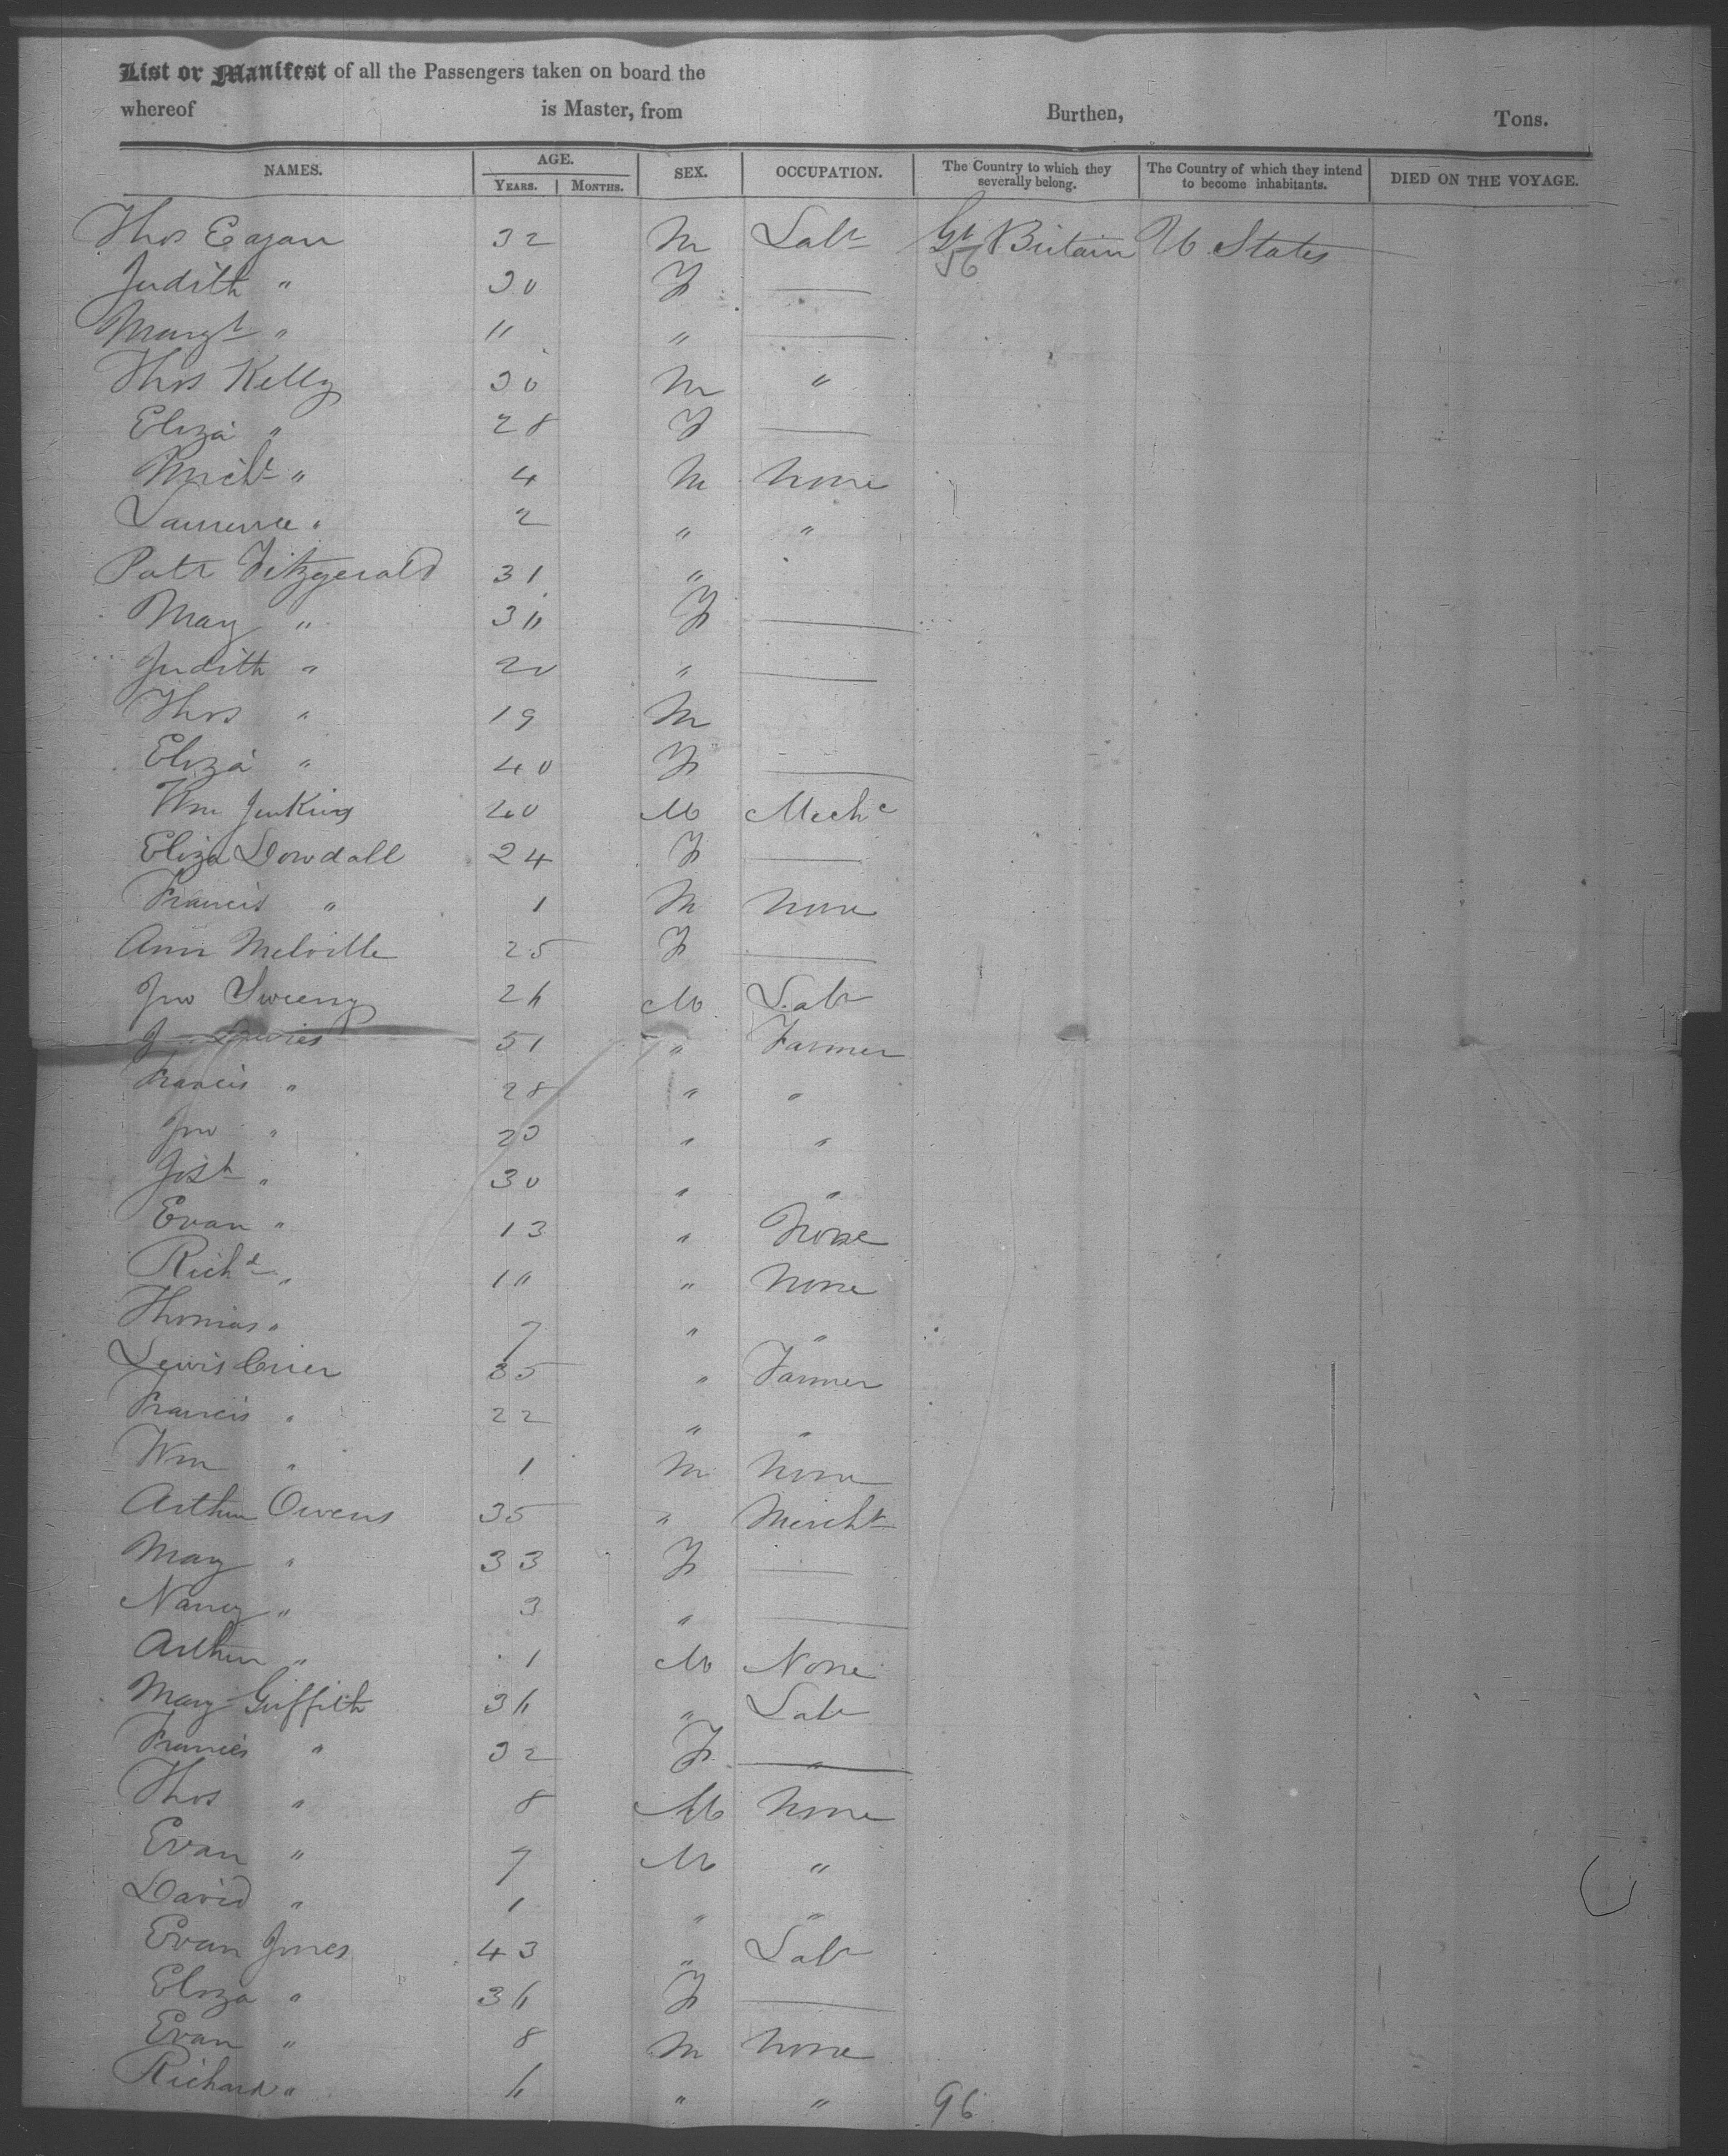 List or Manifest of all the Passengers taken on board the
whereof is Master, from Burthen, Tons.
NAMES. AGE. YEARS. MONTHS. SEX. OCCUPATION. The Country to which they severally belong. The Country of which they intend to become inhabitants. DIED ON THE VOYAGE.
Thos Eagan 32 M Labr Gt Britain U States
56
Judith " 30 F —
Margt " 11 " —
Thos Kelly 30 M "
Eliza " 28 F —
Michl " 4 M None
Laurence " 2 " "
Patr Fitzgerald 31 "
Mary " 36 F —
Judith " 20 " —
Thos " 19 M
Eliza " 40 F —
Wm Jenkins 20 M Mechc
Eliza Dowdall 24 F —
Francis " 1 M None
Ann Melville 25 F —
Jno Sweeny 26 M Labr
J Davies 51 " Farmer
Francis " 28 " "
Jno " 23 " "
Josh " 30 " "
Evan " 13 " None
Richd " 10 " None
Thomas " 7 " "
Lewis Crier 35 " Farmer
Francis " 22 " "
Wm " 1 M None
Arthur Owens 35 " Mercht
Mary " 33 F —
Nancy " 3 " —
Arthur " 1 M None
Mary Griffith 36 " Labr
Francis " 32 F — "
Thos " 8 M None
Evan " 7 M "
David " 1 " "
Evan Jones 43 " Labr
Eliza " 36 F —
Evan " 8 M None
Richard " 6 " " 96